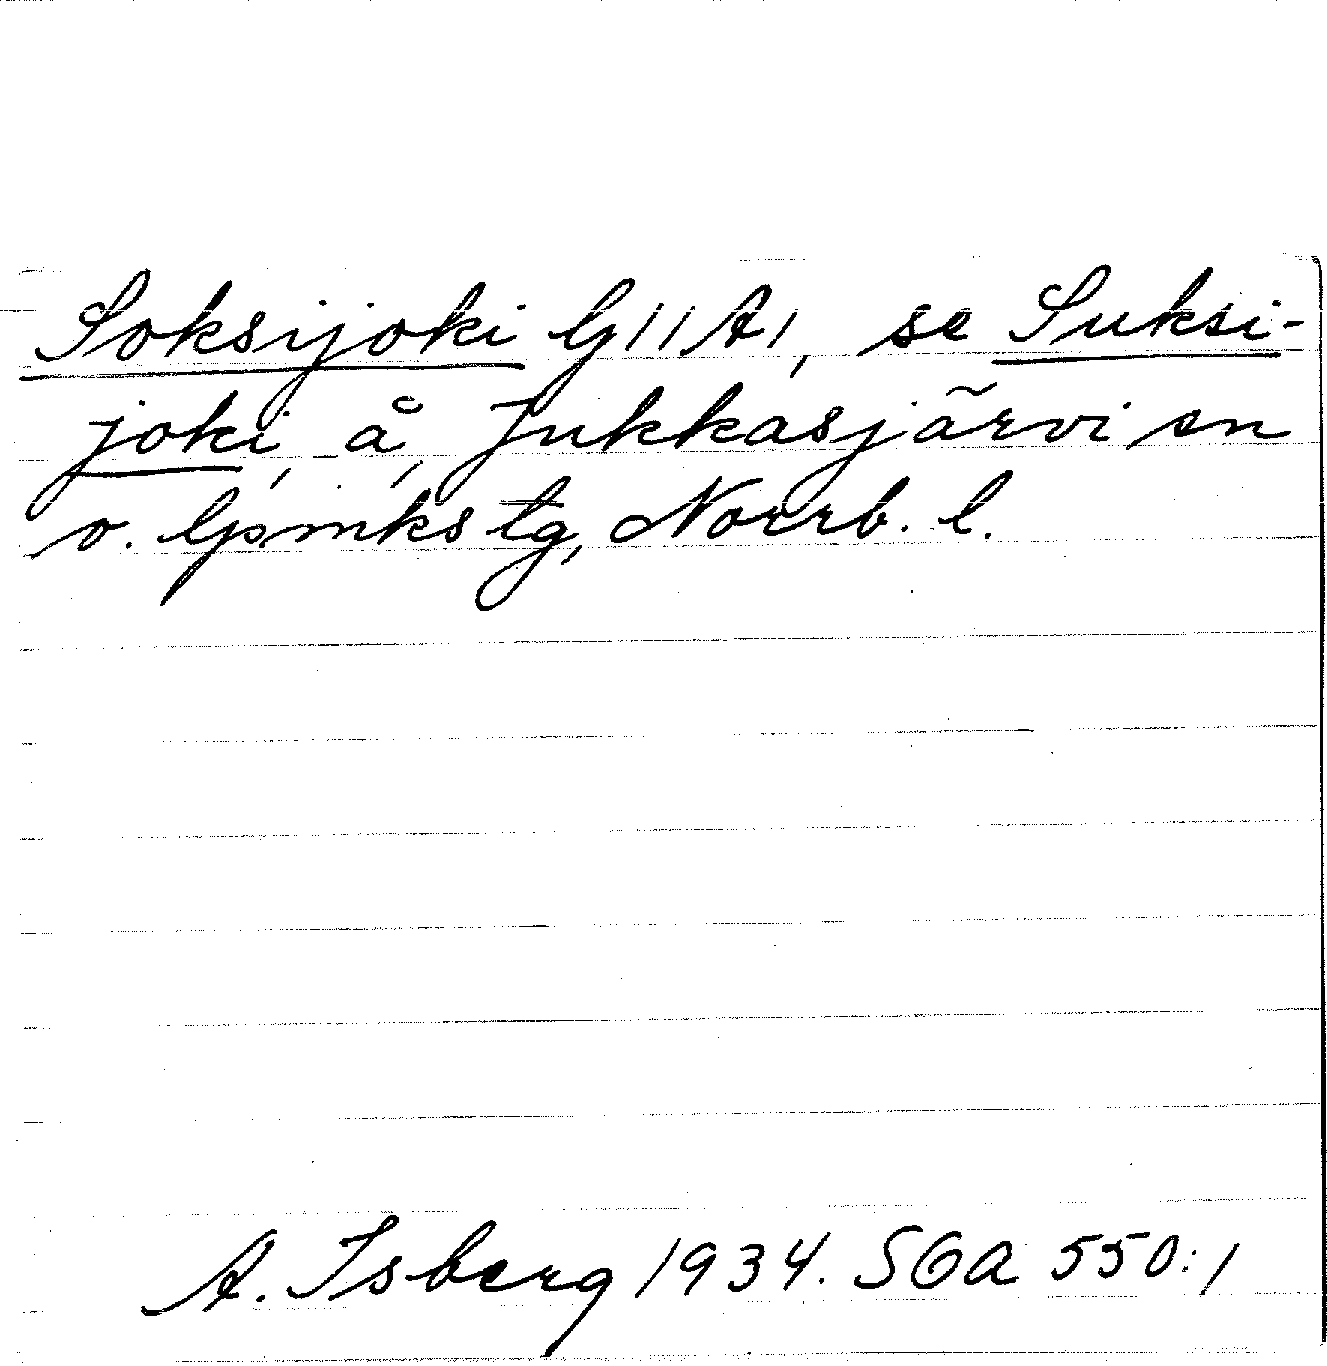 Soksijoki G11A1, se Suksi-
joki, å, Jukkasjärvi sn
o. lpmks tg, Norrb. l.
A. Isberg 1934. SOA 550:1